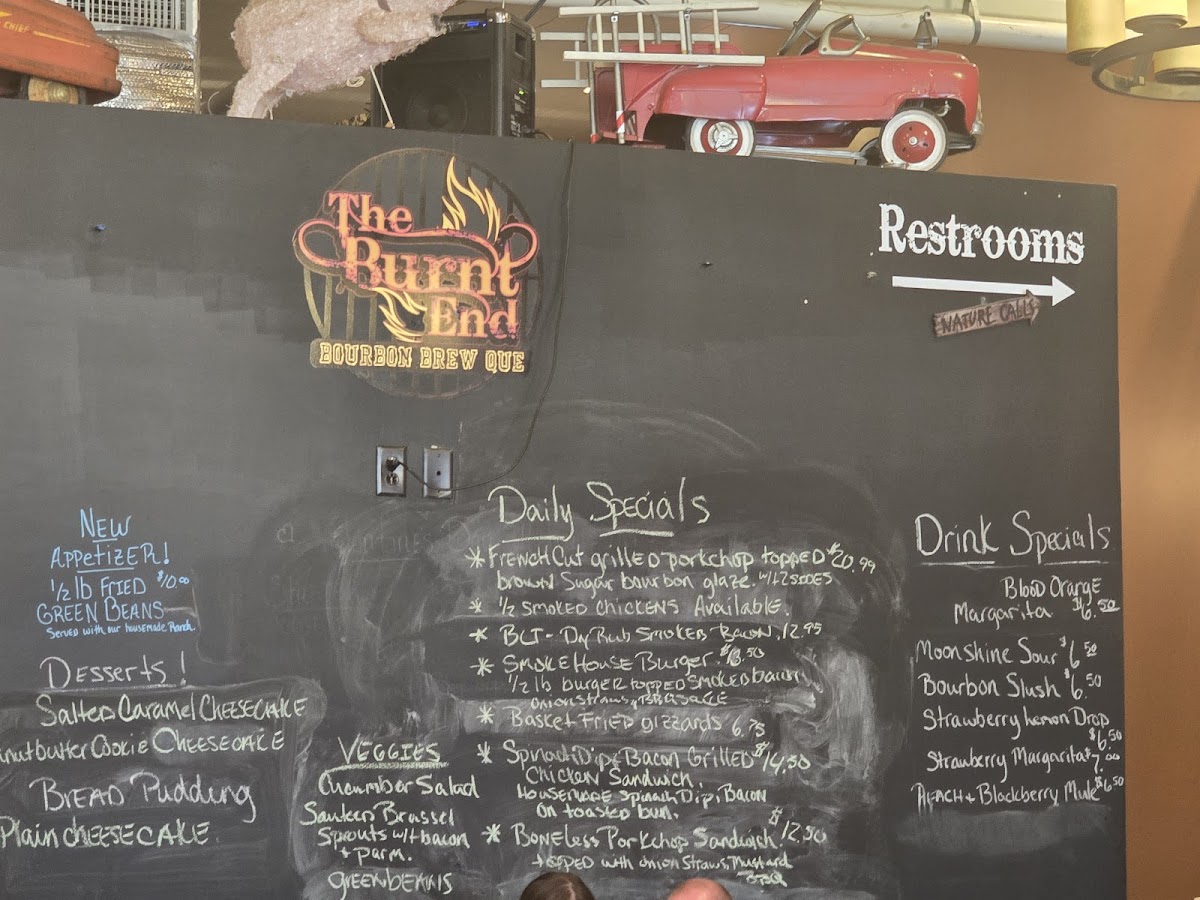 CHIEF
The
Burnt
End
BOURBON BREW QUE
Restrooms
NATURE CALLS
NEW
APPetizER!
1/2 lb FRIED $10.00
GREEN BEANS
Served with our housemade Ranch.
Desserts!
Salted Caramel CHEESECAKE
nutbutter Cookie CHEESECAKE
BREAD Pudding
Plain cheeseCAKE.
VEGGIES
Cucumber Salad
Sauteed Brussel
Sprouts w/ bacon
+ parm.
greenbeans
Daily Specials
* French Cut grilled porkchop topped $20.99
brown Sugar bourbon glaze. w/ 2 SIDES
* 1/2 SMOKED CHICKENS Available.
* BLT - Dry Rub Smoked Bacon, 12.95
* SMOKEHOUSE Burger.
1/2 lb burger topped smoked bacon
onion straws, BBQ SAUCE
* Basket Fried gizzards 6.75
* Spinach Dip & Bacon Grilled $14.50
Chicken Sandwich,
Housemade Spinach Dip, Bacon
on toasted bun.
* Boneless Porkchop Sandwich. $12.50
topped with onion straws, Mustard
Drink Specials
Blood Orange
Margarita $6.50
Moonshine Sour $6.50
Bourbon Slush $6.50
Strawberry Lemon Drop
$6.50
Strawberry Margarita $7.00
PEACH & Blackberry Mule $6.50